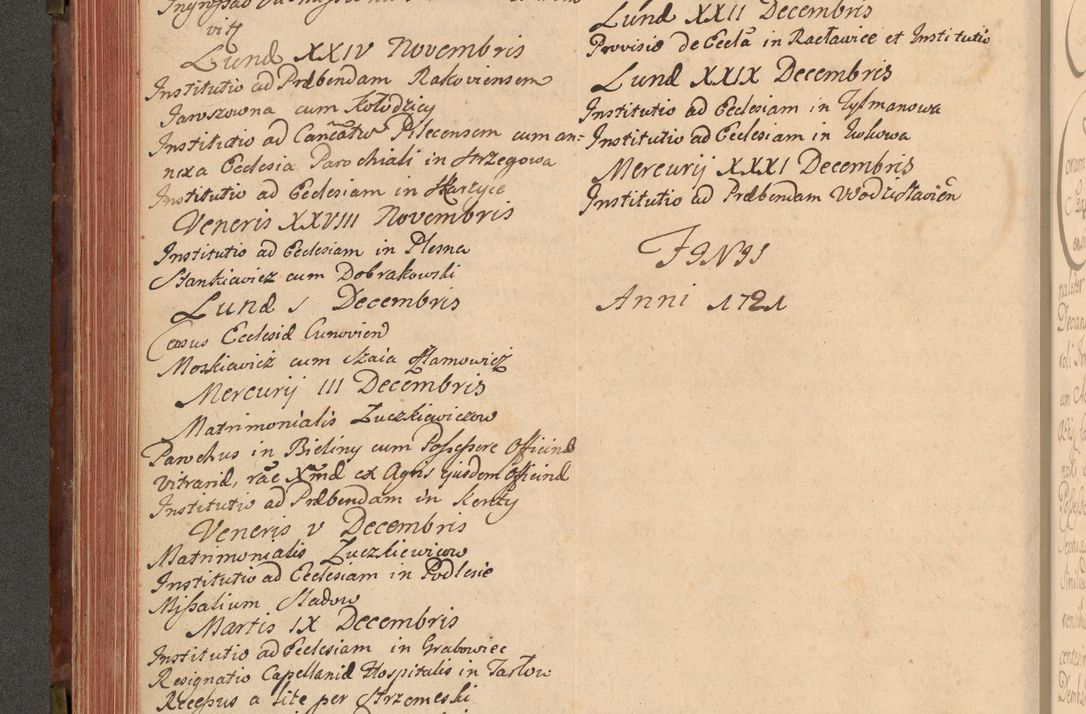 vitz
Lunæ XXIV Novembris
Institutio ad Præbendam Rakoviensem
Jaroszowna cum Kołodzicy
Institutio ad Canc̃atũ Pilecensem cum an-
nexa Ecclesia Parochiali in Strzegowa
Institutio ad Ecclesiam in Skarżyce
Veneris XXVIII Novembris
Institutio ad Ecclesiam in Plesna
Stankiewicz cum Dobrakowski
Lunæ 1 Decembris
Census Ecclesiæ Cunovien
Moskiewicz cum Szaia Hamowicz
Mercurij III Decembris
Matrimonialis Zuczkiewiczow
Parochus in Bieliny cum Possessore Officinæ
vitrariæ, rãe Xmæ ex Agris ejusdem Officinæ
Institutio ad Præbendam in Kenty
Veneris V Decembris
Matrimonialis Zuczkiewicow
Institutio ad Ecclesiam in Podlesie
Missalium Sladow
Martis IX Decembris
Institutio ad Ecclesiam in Grabowiec
Resignatio Capellaniæ Hospitalis in Tarłow
Recessus a lite per Strzemeski
Lunæ XXII Decembris
Provisio de Eccla in Racławice et Institutio
Lunæ XXIX Decembris
Institutio ad Ecclesiam in Tylmanowa
Institutio ad Ecclesiam in Łukowa
Mercurij XXXI Decembris
Institutio ad Præbendam Wodzisławien̄
FINIS
Anni 1721